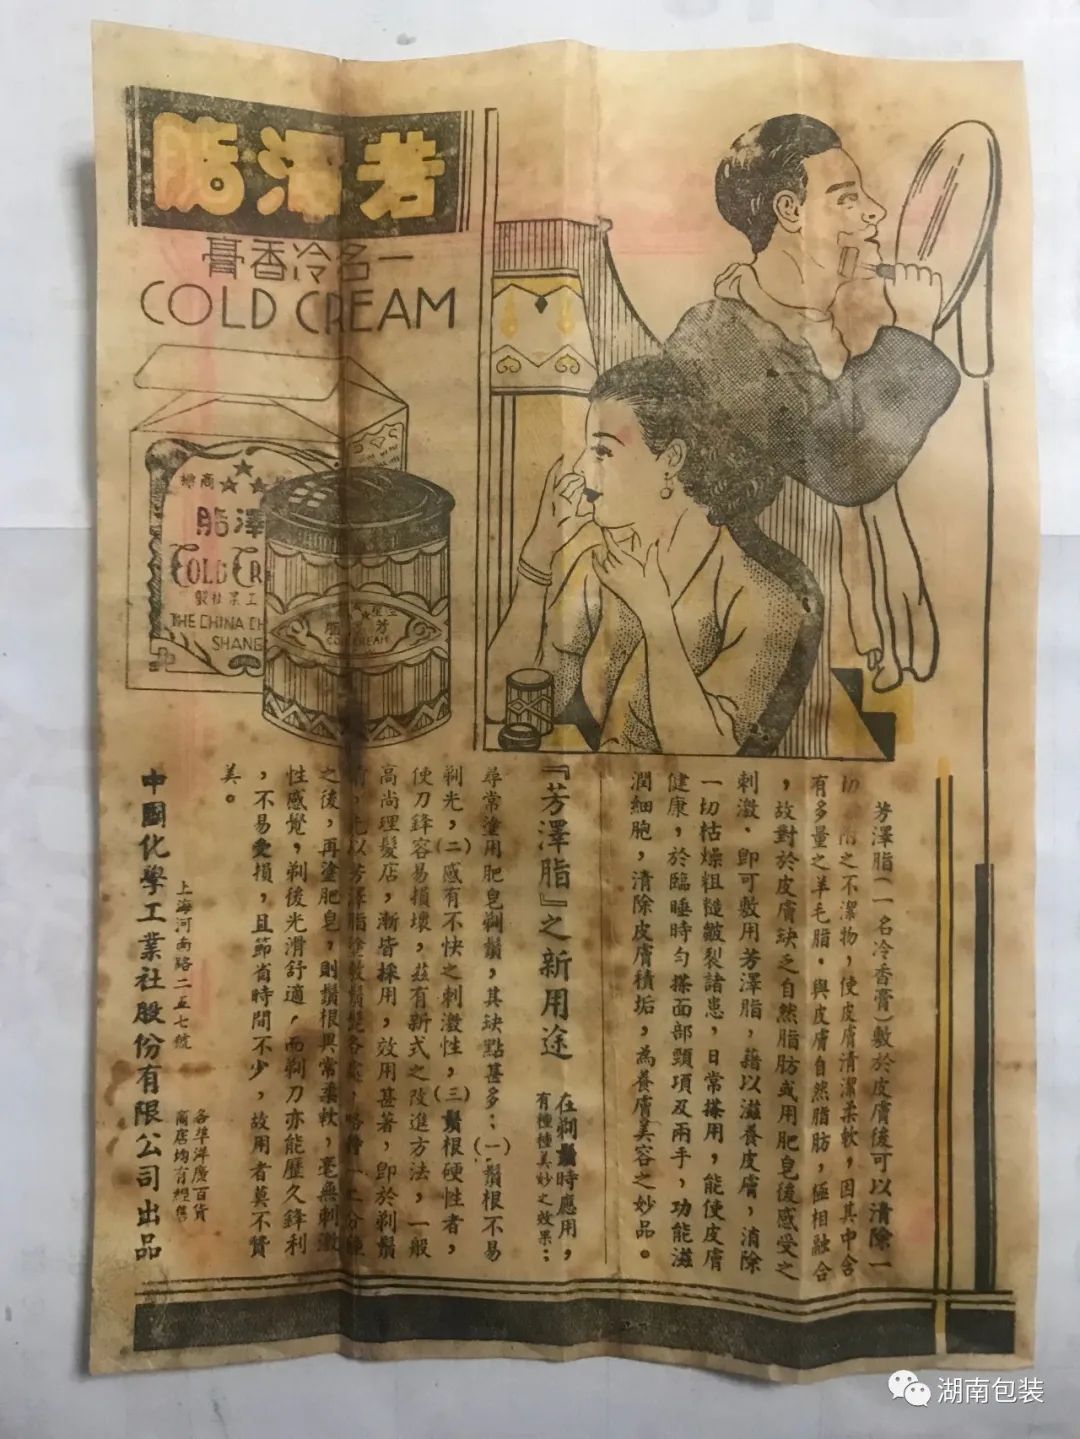 芳澤脂
一名冷香膏
COLD CREAM
商標
澤脂
COLD CR
工業社製
THE CHINA CH
SHANG
三星
芳澤脂
COLD CREAM
芳澤脂(一名冷香膏)敷於皮膚後可以清除一
切 之不潔物,使皮膚清潔柔軟,因其中含
有多量之羊毛脂。與皮膚自然脂肪,極相融合
,故對於皮膚缺乏自然脂肪或用肥皂後感受之
刺激。卽可敷用芳澤脂,藉以滋養皮膚,消除
一切枯燥粗糙皺裂諸患,日常搽用,能使皮膚
健康,於臨睡時勻搽面部頸項及兩手,功能滋
潤細胞,清除皮膚積垢,為養膚美容之妙品。
『芳澤脂』之新用途
在剃鬚時應用,
有種種美妙之效果:
尋常塗用肥皂剃鬚,其缺點甚多:(一)鬚根不易
剃光,(二)感有不快之刺激性,(三)鬚根硬性者,
使刀鋒容易損壞,茲有新式之改進方法,一般
高尚理髮店,漸皆採用,效用甚著,卽於剃鬚
前,先以芳澤脂塗敷鬚髭各處,略待一二分鐘
之後,再塗肥皂,則鬚根異常柔軟,毫無刺激
性感覺,剃後光滑舒適,而剃刀亦能歷久鋒利
,不易受損,且節省時間不少,故用者莫不贊
美。
各埠洋廣百貨
商店均有經售
上海河南路二五七號
中國化學工業社股份有限公司出品
湖南包装